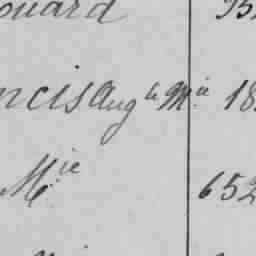 ouard
ncis Aug.te M.ie 18
M.ie 652